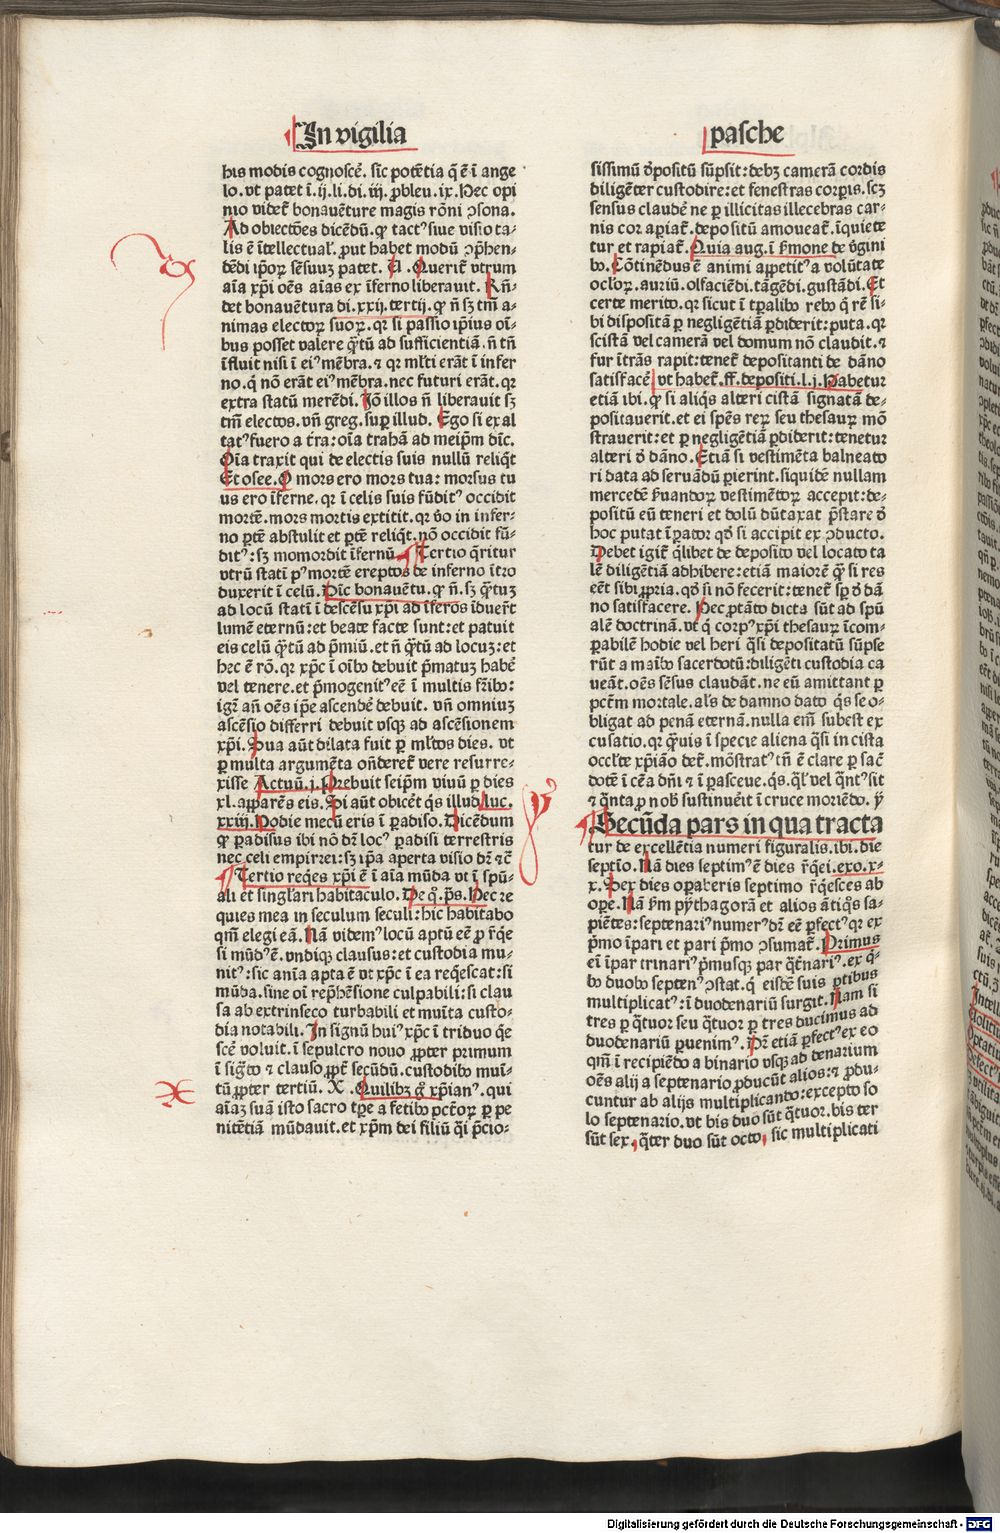 In vigilia
pasche
his modis cognoscē. sic potētia q̄ ē ī ange
lo. vt patet ī. ij. li. di. iij. ꝓbleu. ix. Hec opi
nio videt̄ bonauēture magis rōni ꝯsona.
Ad obiectōes dicēdū. ꝙ tactꝰ siue visio ta⸗
lis ē ītellectual̄. ꝓut habet modū ꝯp̄hen⸗
dēdi ip̄oꝝ sēsuuꝫ patet. U. Querit̄ vtrum
aīa xp̄i oēs aīas ex īferno liberauit. Rn̄⸗
det bonauētura di. xxij. tertij. ꝙ n̄ sꝫ tm̄ a⸗
nimas electoꝝ suoꝝ. qꝛ si passio ip̄ius oī⸗
bus posset valere q̄tū ad sufficientiā. n̄ tn̄
īfluit nisi ī eiꝰ mēbra. ⁊ qꝛ ml̄ti erāt ī infer
no. q̄ nō erāt eiꝰ mēbra. nec futuri erāt. qꝛ
extra statū merēdi. Iō illos n̄ liberauit sꝫ
tm̄ electos. vn̄ greg. suꝑ illud. Ego si exal
tatꝰ fuero a t̄ra: oīa trahā ad meip̄m dīc.
Oīa traxit qui de electis suis nullū reliq̄t
Et osee. O mors ero mors tua: morsus tu
us ero īferne. qꝛ ī celis suis fūditꝰ occidit
mortē. mors mortis extitit. qꝛ v̄o in infer⸗
no ꝑtē abstulit et ꝑtē reliq̄t. nō occidit fū⸗
ditꝰ: sꝫ momordit īfernū. Tertio q̄ritur
vtrū statī pꝰ mortē ereptos de inferno ītro
duxerit ī celū. Dīc bonauētu. ꝙ n̄. sꝫ q̄tuꝫ
ad locū statī ī descēsu xp̄i ad īferos īduēr̄t
lumē eternū: et beate facte sunt: et patuit
eis celū q̄tū ad p̄miū. et n̄ q̄tū ad locuꝫ: et
hec ē rō. qꝛ xp̄c ī oībꝰ debuit p̄matuꝫ habē
vel tenere. et p̄mogenitꝰ eē ī multis fr̄ibꝰ:
igr̄ an̄ oēs ip̄e ascendē debuit. vn̄ omniuꝫ
ascēsio differri debuit vsqꝫ ad ascēsionem
xp̄i. Sua aūt dilata fuit ꝑ ml̄tos dies. vt
ꝑ multa argumēta on̄deret̄ vere resurre⸗
xisse Actuū. j. Prebuit seip̄m viuū ꝑ dies
xl. apparēs eis. Si aūt obicēt q̄s illud luc.
xxiij. Hodie mecū eris ī ꝑadiso. Dicēdum
ꝙ ꝑadisus ibi nō dr̄ locꝰ ꝑadisi terrestris
nec celi empirei: sꝫ ip̄a aperta visio dr̄ ⁊c̄
Tertio reqes xp̄i ē ī aīa mūda vt ī spū⸗
ali et singl̄ari habitaculo. De q̄. ps̄. Hec re
quies mea in seculum seculi: hic habitabo
qm̄ elegi eā. Nā videmꝰ locū aptū eē ꝓ r̄q̄e
si mūdꝰ ē. vndiqꝫ clausus: et custodia mu⸗
nitꝰ: sic anīa apta ē vt xp̄c ī ea req̄escat: si
mūda. sine oī rep̄hēsione culpabili: si clau
sa ab extrinseco turbabili et muīta custo⸗
dia notabili. In signū huiꝰ xp̄c ī triduo q̄e
scē voluit. ī sepulcro nouo ꝓpter primum
ī sig̅to ⁊ clauso ꝓpt̄ secūdū. custodibꝰ muī⸗
tū ꝓpter tertiū. X. Quilibꝫ g̊ xp̄ianꝰ. qui
aīaꝫ suā isto sacro tꝑe a fetibꝰ pc̄toꝝ ꝑ pe
nitētiā mūdauit. et xp̄m dei filiū q̄i p̄cio⸗
sissimū d̓positū sūpsit: debꝫ camerā cordis
diligēter custodire: et fenestras corpīs. scꝫ
sensus claudē ne ꝑ illicitas illecebras car⸗
nis cor apīat̄. depositū amoueat̄. īquiete
tur et rapiat̄. Quia aug. ī s̄mone de v̄gini
bꝰ. Cōtinēdus ē animi appetitꝰ a volūtate
ocloꝝ. auriū. olfaciēdi. tāgēdi. gustādi. Et
certe merito. qꝛ sicut ī tꝑalibꝰ rebꝰ q̄ rē si⸗
bi dispositā ꝑ negligētiā ꝑdiderit: puta. qꝛ
scistā vel camerā vel domum nō claudit. ⁊
fur ītrās rapit: tenet̄ depositanti de dāno
satisfacē vt habet̄. ff. depositi. l. j. Habetur
etiā ibi. ꝙ si aliq̄s alteri cistā signatā de⸗
positauerit. et ei sp̄es reꝝ seu thesauꝝ mō
strauerit: et ꝑ negligētiā ꝑdiderit: tenetur
alteri d̓ dāno. Etiā si vestimēta balneato
ri data ad seruādū pierint. siquidē nullam
mercedē s̄uandoꝝ vestimētoꝝ accepit: de⸗
positū eū teneri et dolū dūtaxat p̄stare d̓
hoc putat īꝑator qd̓ si accipit ex ꝯducto.
Debet igit̄ q̄libet de deposito vel locato ta
lē diligētiā adhibere: etiā maiorē q̄ si res
eēt sibi ꝓpria. qd̓ si nō fecerit: tenet̄ sꝑ d̓ dā
no satisfacere. Hec ꝑtāto dicta sūt ad spū
alē doctrinā. vt q̄ corpꝰ xp̄i thesauꝝ īcom⸗
ꝑabilē hodie vel heri q̄si depositatū sūpse
rūt a maībꝰ sacerdotū: diligēti custodia ca
ueāt. oēs sēsus claudāt. ne eū amittant ꝑ
pctm̄ mortale. al̄s de damno dato q̄s se o⸗
bligat ad penā eternā. nulla em̄ subest ex
cusatio. qꝛ q̄uis ī specie aliena q̄si in cista
occl̄te xp̄iāo det̄. mōstrat̄ tn̄ ē clare ꝑ sac̄
dotē ī cēa dn̄i ⁊ ī ꝑasceue. q̄s. q̄l̄ vel q̄ntꝰ sit
⁊ q̄nta ꝓ nob̄ sustinuēit ī cruce moriēdo. ẏ
Secūda pars in qua tracta
tur de excellētia numeri figuralis. ibi. die
septīo. Nā dies septimꝰ ē dies r̄q̄ei. exo. x⸗
x. Sex dies oꝑaberis septimo r̄q̄esces ab
oꝑe. Nā s̄m pythagorā et alios ātiq̄s sa⸗
piētes: septenariꝰ numerꝰ dr̄ eē ꝑfectꝰ qꝛ ex
p̄mo īpari et pari p̄mo ꝯsumat̄. Primus
eī īpar trinariꝰ p̄musqꝫ par q̄t̄nariꝰ. ex q̄⸗
bꝰ duobꝰ septenꝰ ꝯstat. q̄ eisdē suis ꝑtibus
multiplicatꝰ: ī duodenariū surgit. Nam si
tres ꝑ q̄tuor seu q̄tuor ꝑ tres ducimus ad
duodenariū ꝑuenimꝰ. Dr̄ etiā ꝑfectꝰ ex eo
qm̄ ī recipiēdo a binario vsqꝫ ad denarium
oēs alij a septenario ꝓducūt alios: ⁊ ꝓdu⸗
cuntur ab alijs multiplicando: excepto so
lo septenario. vt bis duo sūt q̄tuor. bis ter
sūt sex, q̄ter duo sūt octo, sic multiplicati
Digitalisierung gefördert durch die Deutsche Forschungsgemeinschaft - DFG